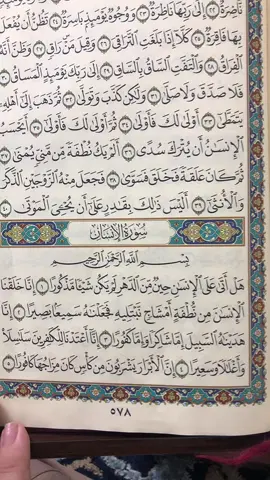 نَّاضِرَةٌ ٢٢ إِلَىٰ رَبِّهَا نَاظِرَةٌ ٢٣ وَوُجُوهٌ يَوْمَئِذٍ بَاسِرَةٌ ٢٤ تَظُنُّ أَن يُفْعَلَ
بِهَا فَاقِرَةٌ ٢٥ كَلَّا إِذَا بَلَغَتِ التَّرَاقِيَ ٢٦ وَقِيلَ مَنْ رَاقٍ ٢٧ وَظَنَّ أَنَّهُ
الْفِرَاقُ ٢٨ وَالْتَفَّتِ السَّاقُ بِالسَّاقِ ٢٩ إِلَىٰ رَبِّكَ يَوْمَئِذٍ الْمَسَاقُ ٣٠
فَلَا صَدَّقَ وَلَا صَلَّىٰ ٣١ وَلَٰكِن كَذَّبَ وَتَوَلَّىٰ ٣٢ ثُمَّ ذَهَبَ إِلَىٰ أَهْلِهِ
يَتَمَطَّىٰ ٣٣ أَوْلَىٰ لَكَ فَأَوْلَىٰ ٣٤ ثُمَّ أَوْلَىٰ لَكَ فَأَوْلَىٰ ٣٥ أَيَحْسَبُ
الْإِنسَانُ أَن يُتْرَكَ سُدًى ٣٦ أَلَمْ يَكُ نُطْفَةً مِّن مَّنِيٍّ يُمْنَىٰ ٣٧
ثُمَّ كَانَ عَلَقَةً فَخَلَقَ فَسَوَّىٰ ٣٨ فَجَعَلَ مِنْهُ الزَّوْجَيْنِ الذَّكَرَ
وَالْأُنثَىٰ ٣٩ أَلَيْسَ ذَٰلِكَ بِقَادِرٍ عَلَىٰ أَن يُحْيِيَ الْمَوْتَىٰ ٤٠
سُورَةُ الْإِنسَانِ
بِسْمِ اللَّهِ الرَّحْمَٰنِ الرَّحِيمِ
هَلْ أَتَىٰ عَلَى الْإِنسَانِ حِينٌ مِّنَ الدَّهْرِ لَمْ يَكُن شَيْئًا مَّذْكُورًا ١ إِنَّا خَلَقْنَا
الْإِنسَانَ مِن نُّطْفَةٍ أَمْشَاجٍ نَّبْتَلِيهِ فَجَعَلْنَاهُ سَمِيعًا بَصِيرًا ٢ إِنَّا
هَدَيْنَاهُ السَّبِيلَ إِمَّا شَاكِرًا وَإِمَّا كَفُورًا ٣ إِنَّا أَعْتَدْنَا لِلْكَافِرِينَ سَلَاسِلَا
وَأَغْلَالًا وَسَعِيرًا ٤ إِنَّ الْأَبْرَارَ يَشْرَبُونَ مِن كَأْسٍ كَانَ مِزَاجُهَا كَافُورًا ٥
٥٧٨